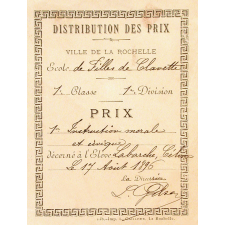 DISTRIBUTION DES PRIX
VILLE DE LA ROCHELLE
Ecole de Filles de Clavette
1re Classe 1re Division
PRIX
1er Instruction morale
et civique
décerné à l'Elève Labarche,
Le 17 Août 1895
La Directrice
La Rochelle.